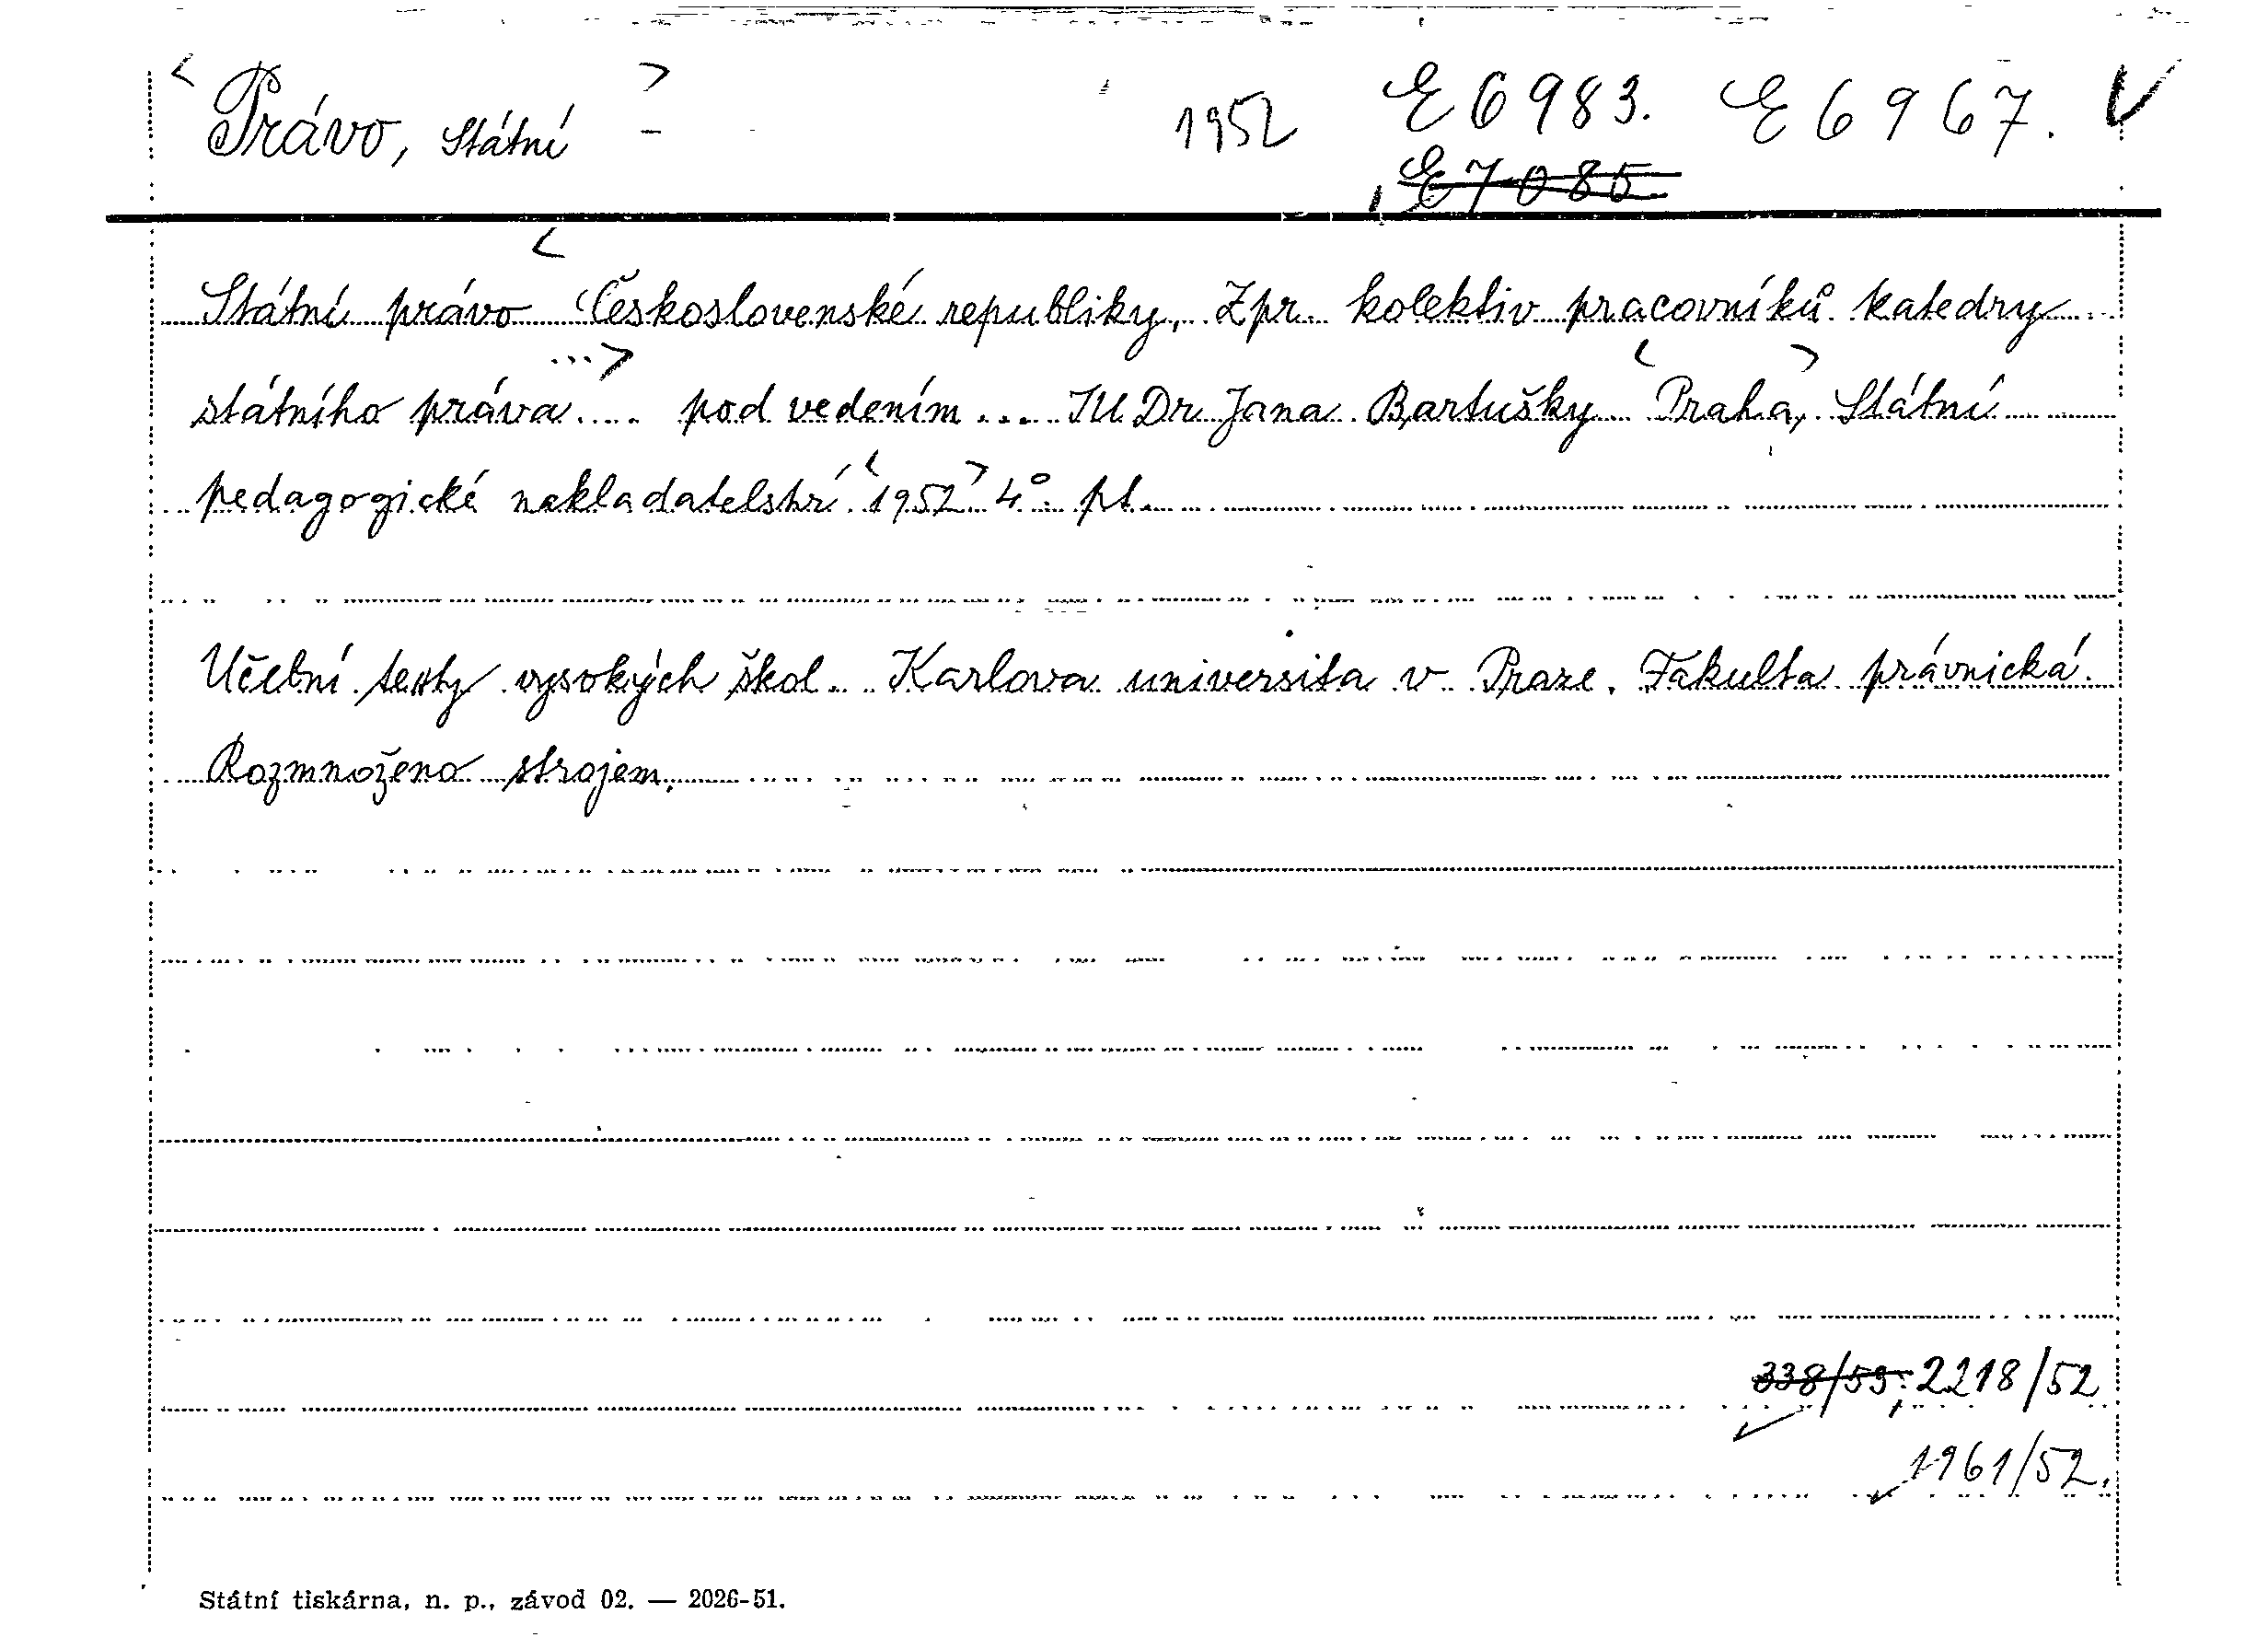 < Právo, státní > - 1952 E 6983. E 6967. V
E 7085.
Státní právo < Československé republiky, Zpr. kolektiv pracovníků katedry
státního práva .... ...> pod vedením ... JUDr Jana Bartušky < Praha, > Státní
pedagogické nakladatelství < 1952 > 4°. pl.
Učební texty vysokých škol. Karlova universita v Praze. Fakulta právnická.
Rozmnoženo strojem.
338/53; 2218/52
1961/52.
Státní tiskárna, n. p., závod 02. — 2026-51.